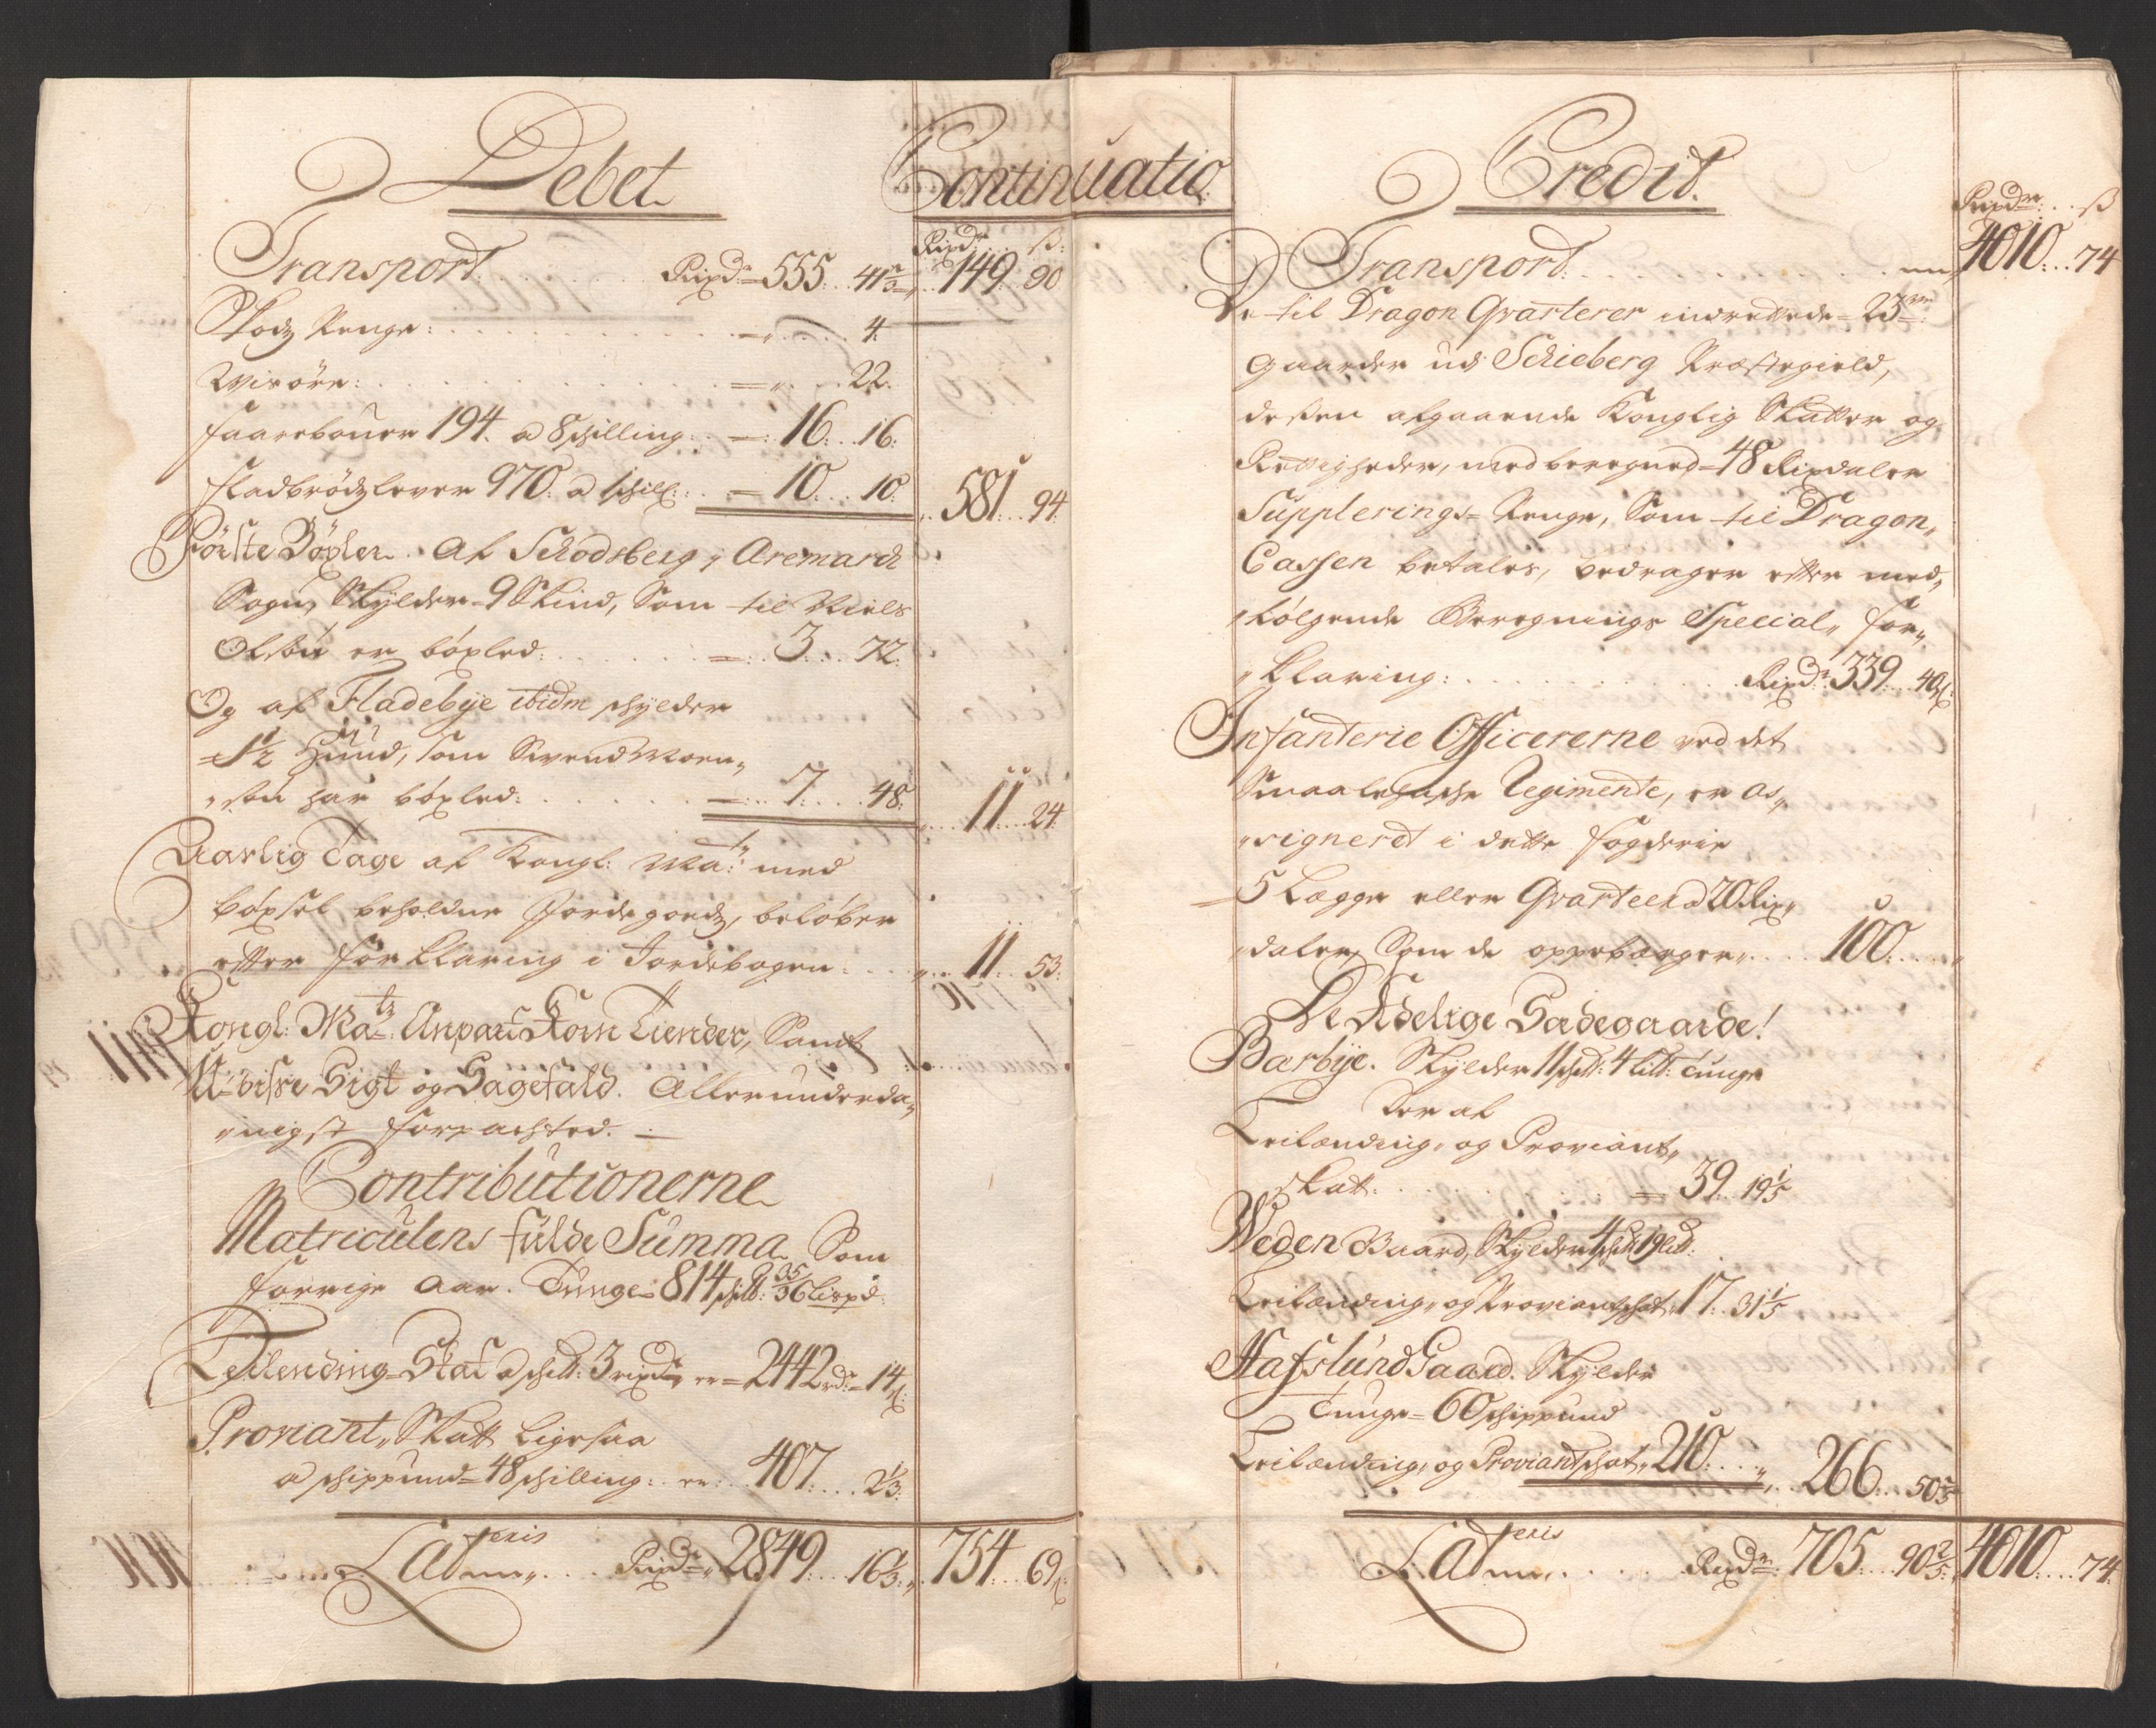 Debet
Continuatio
Rixdr ß:
Transport. Rixdr 555. 41 149. 90
Skodz Penge: 4.
Wisöre: 22.
faarebouer 194. a 8 schilling. 16. 16.
fladbrödzlever 970. a 1 schill: 10. 10. 581. 94.
Förste Böxler. Af Schodsberg, Aremarch
Sogn, Skylder 9 Skind, Som til Niels
Olsön er böxled: 3. 72.
Og af Fladebye ibidm schylder
1½ Hund, som Svend Moen„
„sön har böxled: 7. 48. 11. 24.
Aarlig Tage af Kongl: Ma:ts med
böxsel beholdne Jordegoedz, beløber
efter forklaring i Jordebogen. 11. 53.
Kongl: Matz Anpart Korn Tiender, Samt
U-visse Sigt og Sagefald. Allerunderda„
„nigst forpachted.
Contributionerne
Matriculens fulde Summa Som
forrige Aar. Tunge 814 schll: 35/36 Lispd.
Leilending-Skat a schll: 3 rixdr er 2442 rdr 14 ß:
Proviant„ Skatt Ligesaa
a schippund 48 schilling: er: 407. 2⅓.
Lateris Rixdr 2849. 16⅓. 754. 69 ß.
Credit.
Rixdr ß
Transport. 4010. 74
De til Dragon Qvarterer indrettede 23de
gaarder udi Schieberg Præstegield,
dessen afgaaende Konglig Skatter og
Rettigheder, med beregned 48 Rixdaler
Supplerings-Penge, Som til Dragon„
Cassen betales, bedrager efter med„
„følgende Beregnings Special„ for„
„klaring: Rixdr 339. 40 ß.
Infanterie Officererne ved det
Smaalehnsche Regimente, er as„
„signeret i dette fogderie
5 Lægge eller Qvarteer a 20 Rix„
„daler, Som de oppebærger 100.
De Adelige Sædegaarde!
Barbye. Skylder 11 schll: 4 Lill: Tunge
Der af
Leilændings og Proviant„
skatt. 39. 19⅕
Weden Gaard, Skylder 4 schll 19 Lill:
Leilændings og Proviantschat 17. 31⅕
Hafslund Gaard. Skylder
Tunge 60 schippund
Leilændings og Proviantschat 210. 266. 50⅖
Lateris Rixdr 705. 90⅖. 4010. 74.